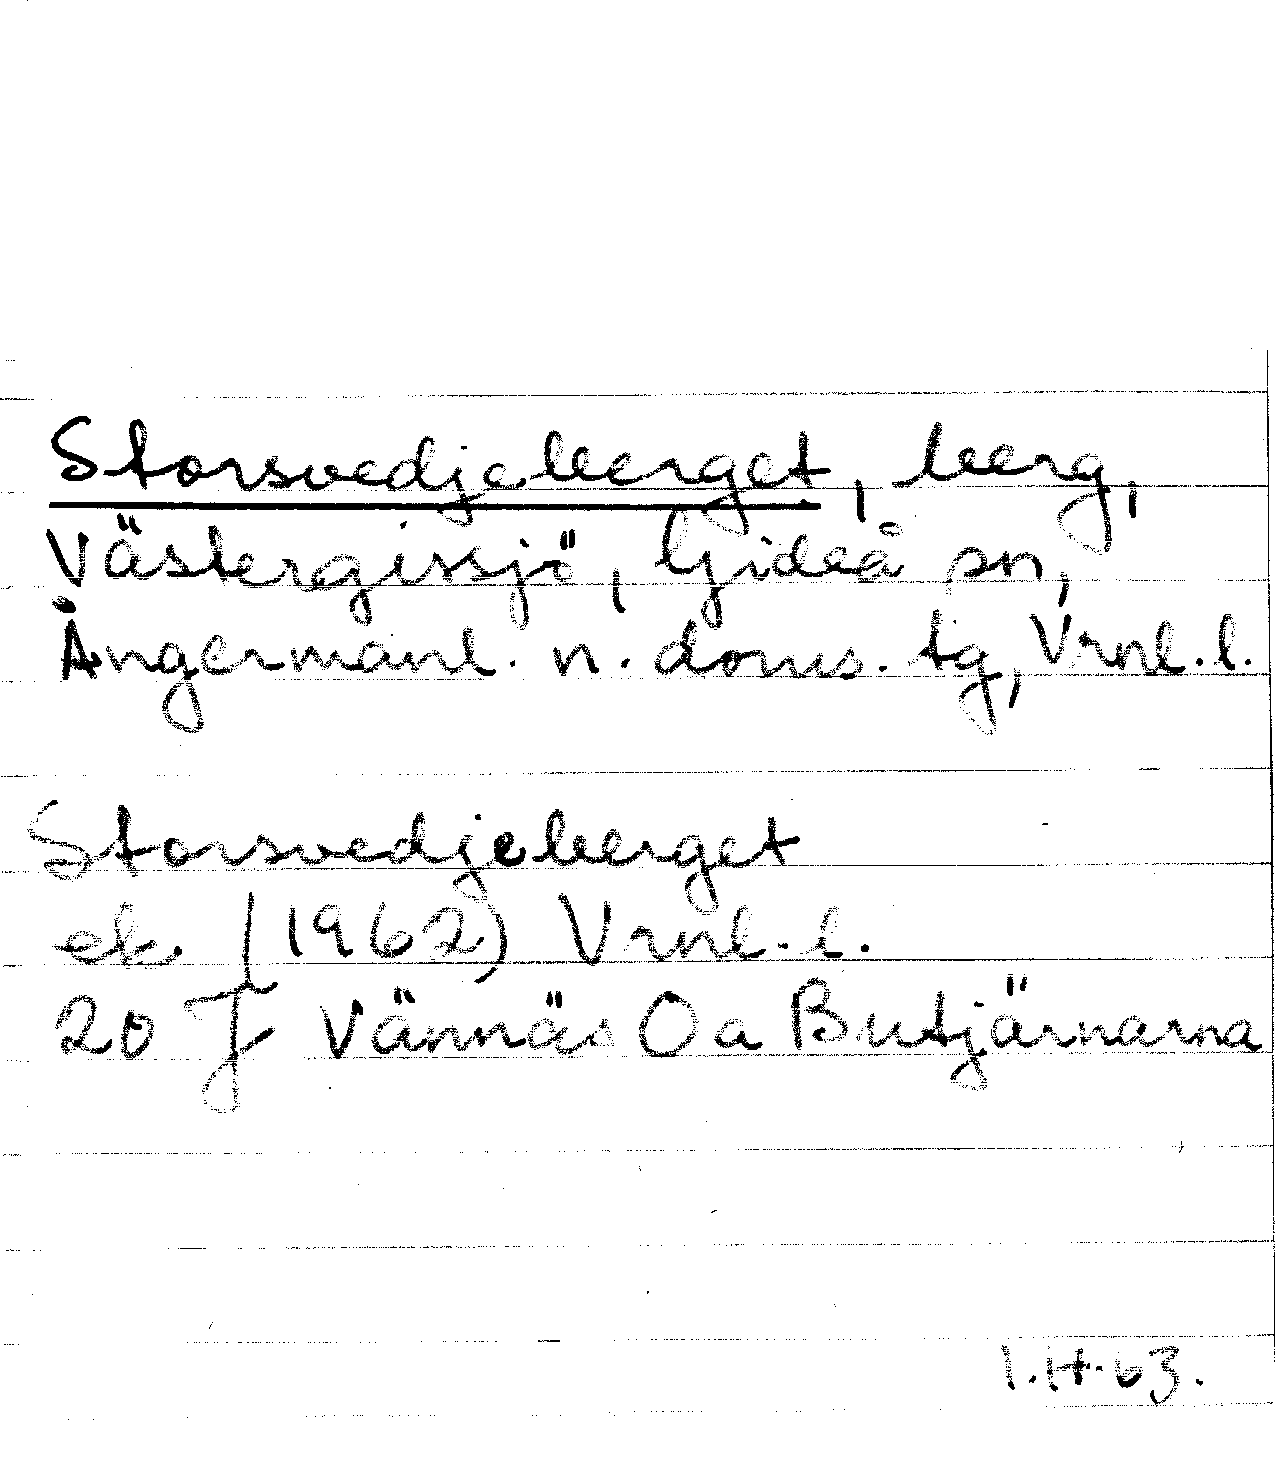 Storsvedjeberget, berg,
Västergissjö, Gideå sn,
Ångermanl. n. doms. tg, Vrnl. l.
Storsvedjeberget
ek. (1962) Vrnl. l.
20 J Vännäs Oa Butjärnarna
63.